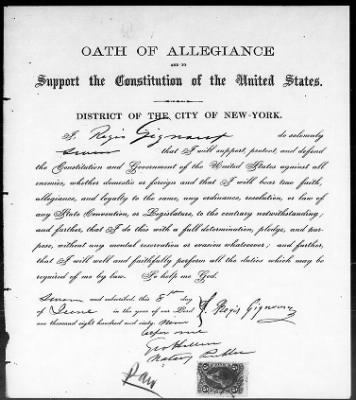 OATH OF ALLEGIANCE
AND TO
Support the Constitution of the United States.
DISTRICT OF THE CITY OF NEW-YORK.
I, Regis Gignoux do solemnly
Swear that I will support, protect, and defend
the Constitution and Government of the United States against all
enemies, whether domestic or foreign and that I will bear true faith,
allegiance, and loyalty to the same, any ordinance, resolution, or law of
any State Convention, or Legislature, to the contrary notwithstanding;
and further, that I do this with a full determination, pledge, and pur-
pose, without any mental reservation or evasion whatsoever; and further,
that I will well and faithfully perform all the duties which may be
required of me by law. So help me God.
Sworn and subscribed, this 5th day
of June in the year of our Lord
one thousand eight hundred and sixty
Regis Gignoux
before me
Notary Public